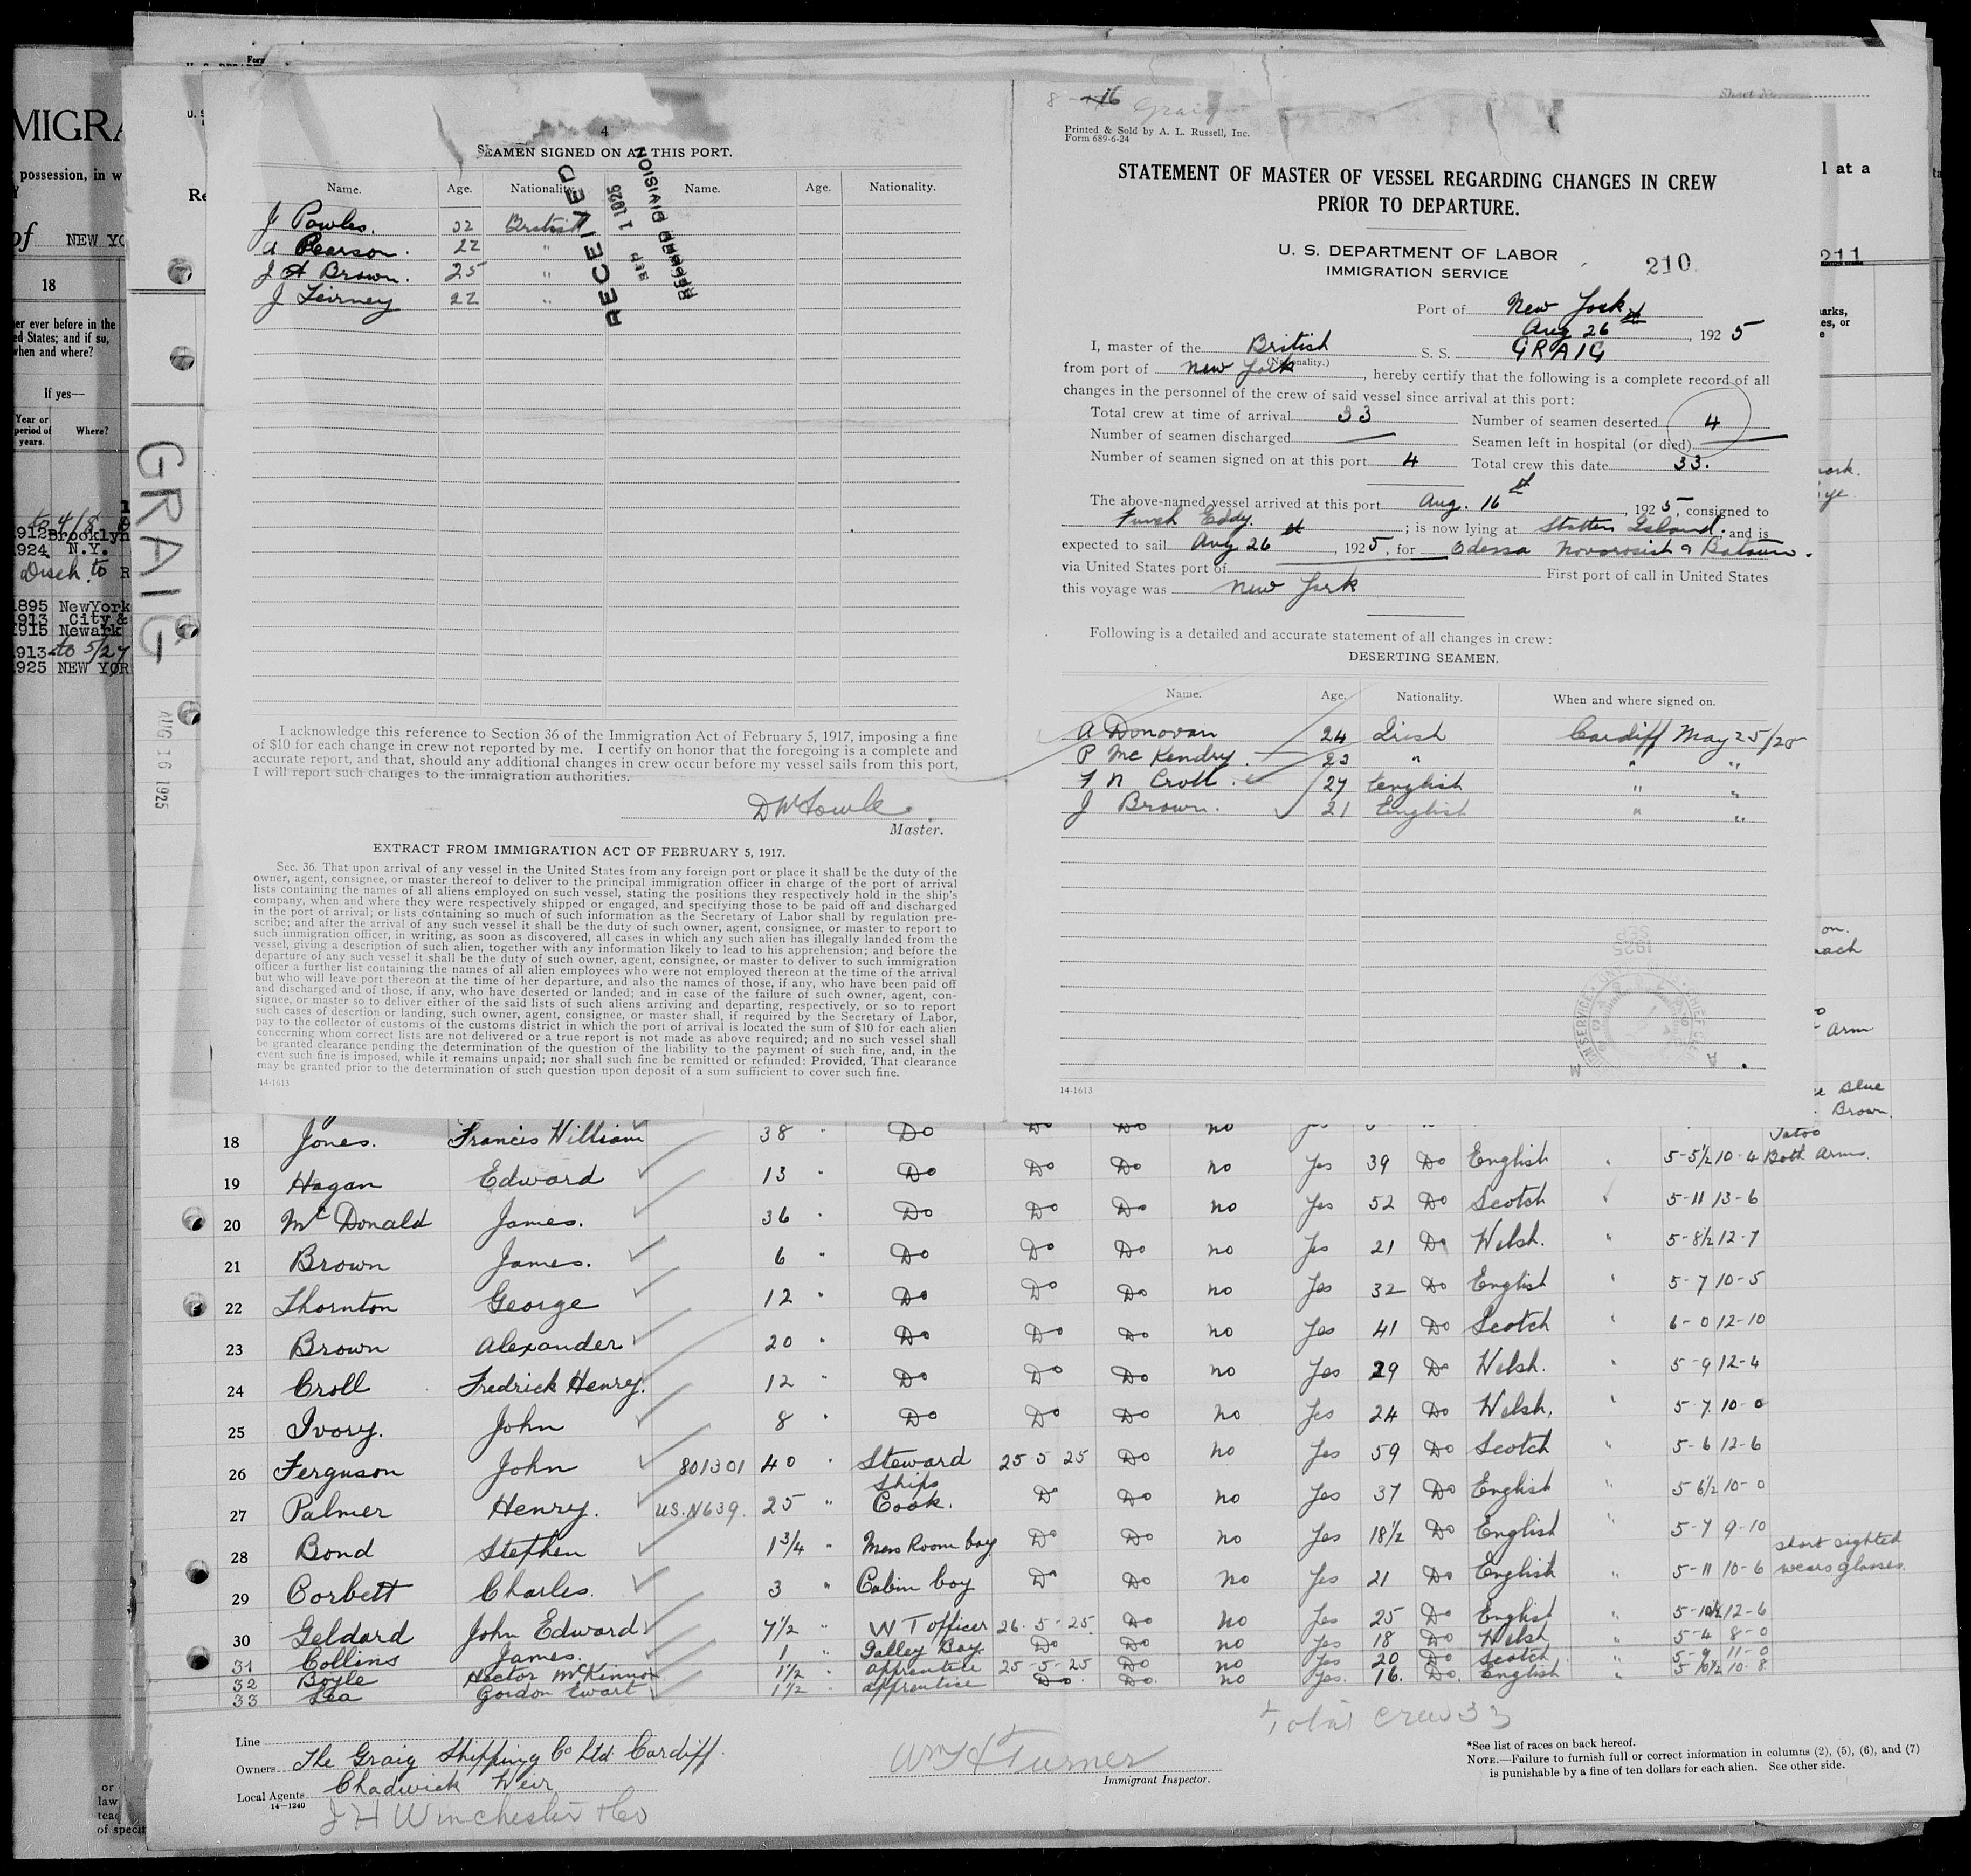 MIGRA
possession, in w
of NEW YO
18
er ever before in the
ed States; and if so,
when and where?
If yes—
Year or
period of
years.
Where?
to 4/8
1912 Brooklyn
1924 N.Y.
Disch. to R
1895 NewYork
1913 City &
1915 Newark
1913 to 5/27
1925 NEW YOR
GRAIG
AUG 16 1925
4
SEAMEN SIGNED ON AT THIS PORT.
Name. Age. Nationality. Name. Age. Nationality.
J Powles. 32 British
A Pearson. 22 "
J A Brown. 25 "
J Teirney 22 "
RECEIVED
SEP 1 1925
RECORD DIVISION
I acknowledge this reference to Section 36 of the Immigration Act of February 5, 1917, imposing a fine
of $10 for each change in crew not reported by me. I certify on honor that the foregoing is a complete and
accurate report, and that, should any additional changes in crew occur before my vessel sails from this port,
I will report such changes to the immigration authorities.
Master.
EXTRACT FROM IMMIGRATION ACT OF FEBRUARY 5, 1917.
Sec. 36. That upon arrival of any vessel in the United States from any foreign port or place it shall be the duty of the
owner, agent, consignee, or master thereof to deliver to the principal immigration officer in charge of the port of arrival
lists containing the names of all aliens employed on such vessel, stating the positions they respectively hold in the ship's
company, when and where they were respectively shipped or engaged, and specifying those to be paid off and discharged
in the port of arrival; or lists containing so much of such information as the Secretary of Labor shall by regulation pre-
scribe; and after the arrival of any such vessel it shall be the duty of such owner, agent, consignee, or master to report to
such immigration officer, in writing, as soon as discovered, all cases in which any such alien has illegally landed from the
vessel, giving a description of such alien, together with any information likely to lead to his apprehension; and before the
departure of any such vessel it shall be the duty of such owner, agent, consignee, or master to deliver to such immigration
officer a further list containing the names of all alien employees who were not employed thereon at the time of the arrival
but who will leave port thereon at the time of her departure, and also the names of those, if any, who have been paid off
and discharged and of those, if any, who have deserted or landed; and in case of the failure of such owner, agent, con-
signee, or master so to deliver either of the said lists of such aliens arriving and departing, respectively, or so to report
such cases of desertion or landing, such owner, agent, consignee, or master shall, if required by the Secretary of Labor,
pay to the collector of customs of the customs district in which the port of arrival is located the sum of $10 for each alien
concerning whom correct lists are not delivered or a true report is not made as above required; and no such vessel shall
be granted clearance pending the determination of the question of the liability to the payment of such fine, and, in the
event such fine is imposed, while it remains unpaid; nor shall such fine be remitted or refunded: Provided, That clearance
may be granted prior to the determination of such question upon deposit of a sum sufficient to cover such fine.
14-1613
8-16 Graig
Printed & Sold by A. L. Russell, Inc.
Form 689-6-24
STATEMENT OF MASTER OF VESSEL REGARDING CHANGES IN CREW
PRIOR TO DEPARTURE.
U. S. DEPARTMENT OF LABOR
IMMIGRATION SERVICE
210
211
Port of New York
Aug 26th, 1925
I, master of the British S. S. GRAIG
(Nationality.)
from port of New York, hereby certify that the following is a complete record of all
changes in the personnel of the crew of said vessel since arrival at this port:
Total crew at time of arrival 33 Number of seamen deserted 4
Number of seamen discharged — Seamen left in hospital (or died) —
Number of seamen signed on at this port 4 Total crew this date 33.
The above-named vessel arrived at this port Aug. 16th, 1925, consigned to
Funch Eddy.; is now lying at Statten Island. and is
expected to sail Aug 26th, 1925, for Odessa Novorosisk & Batoum.
via United States port of First port of call in United States
this voyage was New York
Following is a detailed and accurate statement of all changes in crew:
DESERTING SEAMEN.
Name. Age. Nationality. When and where signed on.
A Donovan 24 Irish Cardiff May 25/25
P McKendry. 23 " " "
F N Croll. 27 English " "
J Brown. 21 English " "
14-1613
18 Jones. Francis William 38 " Do Do Do no Yes
19 Hagan Edward 13 " Do Do Do no Yes 39 Do English " 5-5½ 10-4 Tatoo Both Arms.
20 McDonald James. 36 " Do Do Do no Yes 52 Do Scotch " 5-11 13-6
21 Brown James. 6 " Do Do Do no Yes 21 Do Welsh. " 5-8½ 12-7
22 Thornton George 12 " Do Do Do no Yes 32 Do English " 5-7 10-5
23 Brown Alexander 20 " Do Do Do no Yes 41 Do Scotch " 6-0 12-10
24 Croll Fredrick Henry. 12 " Do Do Do no Yes 29 Do Welsh. " 5-9 12-4
25 Ivory. John 8 " Do Do Do no Yes 24 Do Welsh. " 5-7 10-0
26 Ferguson John 801301 40 " Steward 25-5-25 Do no Yes 59 Do Scotch " 5-6 12-6
27 Palmer Henry. US.N639. 25 " Ships Cook. Do Do no Yes 37 Do English " 5 6½ 10-0
28 Bond Stephen 1¾ " Mess Room boy Do Do no Yes 18½ Do English " 5-7 9-10
29 Corbett Charles. 3 " Cabin boy Do Do no Yes 21 Do English " 5-11 10-6 short sighted wears glasses.
30 Geldard John Edward 7½ " W T officer 26-5-25. Do no Yes 25 Do English " 5-10½ 12-6
31 Collins James. 1 " Galley Boy Do Do no Yes 18 Do Welsh " 5-4 8-0
32 Boyle Hector McKinnon 1½ " apprentice 25-5-25 Do no Yes 20 Do Scotch " 5-9 11-0
33 Lea Gordon Ewart 1½ " apprentice Do. Do. no Yes. 16. Do. English " 5 10½ 10-8
Total Crew 33
Line
Owners The Graig Shipping Co Ltd Cardiff.
Local Agents Chadwick Weir
14-1240
J H Winchester & Co
Wm H Turner
Immigrant Inspector.
*See list of races on back hereof.
NOTE.—Failure to furnish full or correct information in columns (2), (5), (6), and (7)
is punishable by a fine of ten dollars for each alien. See other side.